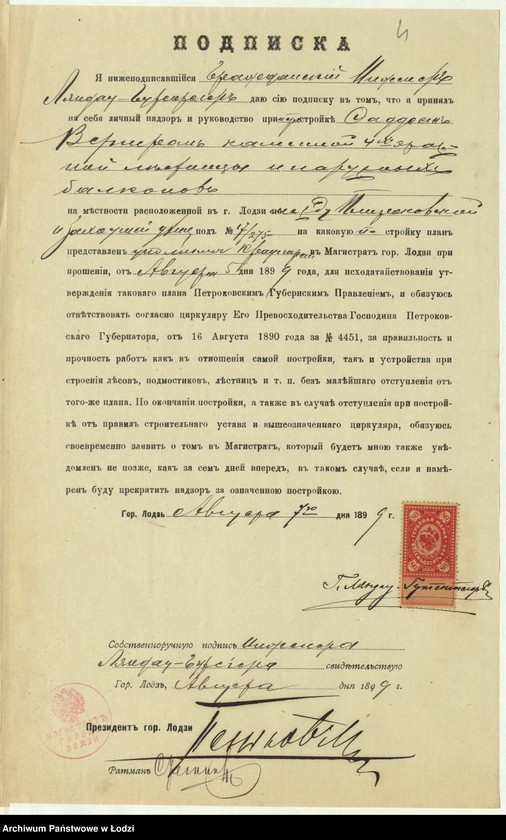 4
ПОДПИСКА
Я нижеподписавшійся Гражданскій Инженеръ
Ляндау-Гутентегеръ даю сію подписку въ томъ, что я принялъ
на себя личный надзоръ и руководство при постройкѣ
каменной
ной лѣстницы и наружныхъ
балконовъ
на мѣстности расположенной въ г. Лодзи
и Заходней улиц подъ № 47/275 на каковую по- стройку планъ
представленъ въ Магистратъ гор. Лодзи при
прошеніи, отъ Августа 5 дня 1899 года, для исходатайствованія ут-
вержденія таковаго плана Петроковскимъ Губернскимъ Правленіемъ, и обязуюсь
отвѣтствовать согласно циркуляру Его Превосходительства Господина Петроков-
скаго Губернатора, отъ 16 Августа 1890 года за № 4451, за правильность и
прочность работъ какъ въ отношеніи самой постройки, такъ и устройства при
строеніи лѣсовъ, подмостковъ, лѣстницъ и т. п. безъ малѣйшаго отступленія отъ
того-же плана. По окончаніи постройки, а также въ случаѣ отступленія при построй-
кѣ отъ правилъ строительнаго устава и вышеозначеннаго циркуляра, обязуюсь
своевременно заявить о томъ въ Магистратъ, который будетъ мною также увѣ-
домленъ не позже, какъ за семь дней впередъ, въ такомъ случаѣ, если я намѣ-
ренъ буду прекратить надзоръ за означенною постройкою.
Гор. Лодзь Августа 7го дня 1899 г.
Г. Ляндау-Гутентегеръ
Собственноручную подпись Инженера
свидѣтельствую
Гор. Лодзь, Августа дня 1899 г.
Президентъ гор. Лодзи
Пеньковскій
Ратманъ
Archiwum Państwowe w Łodzi